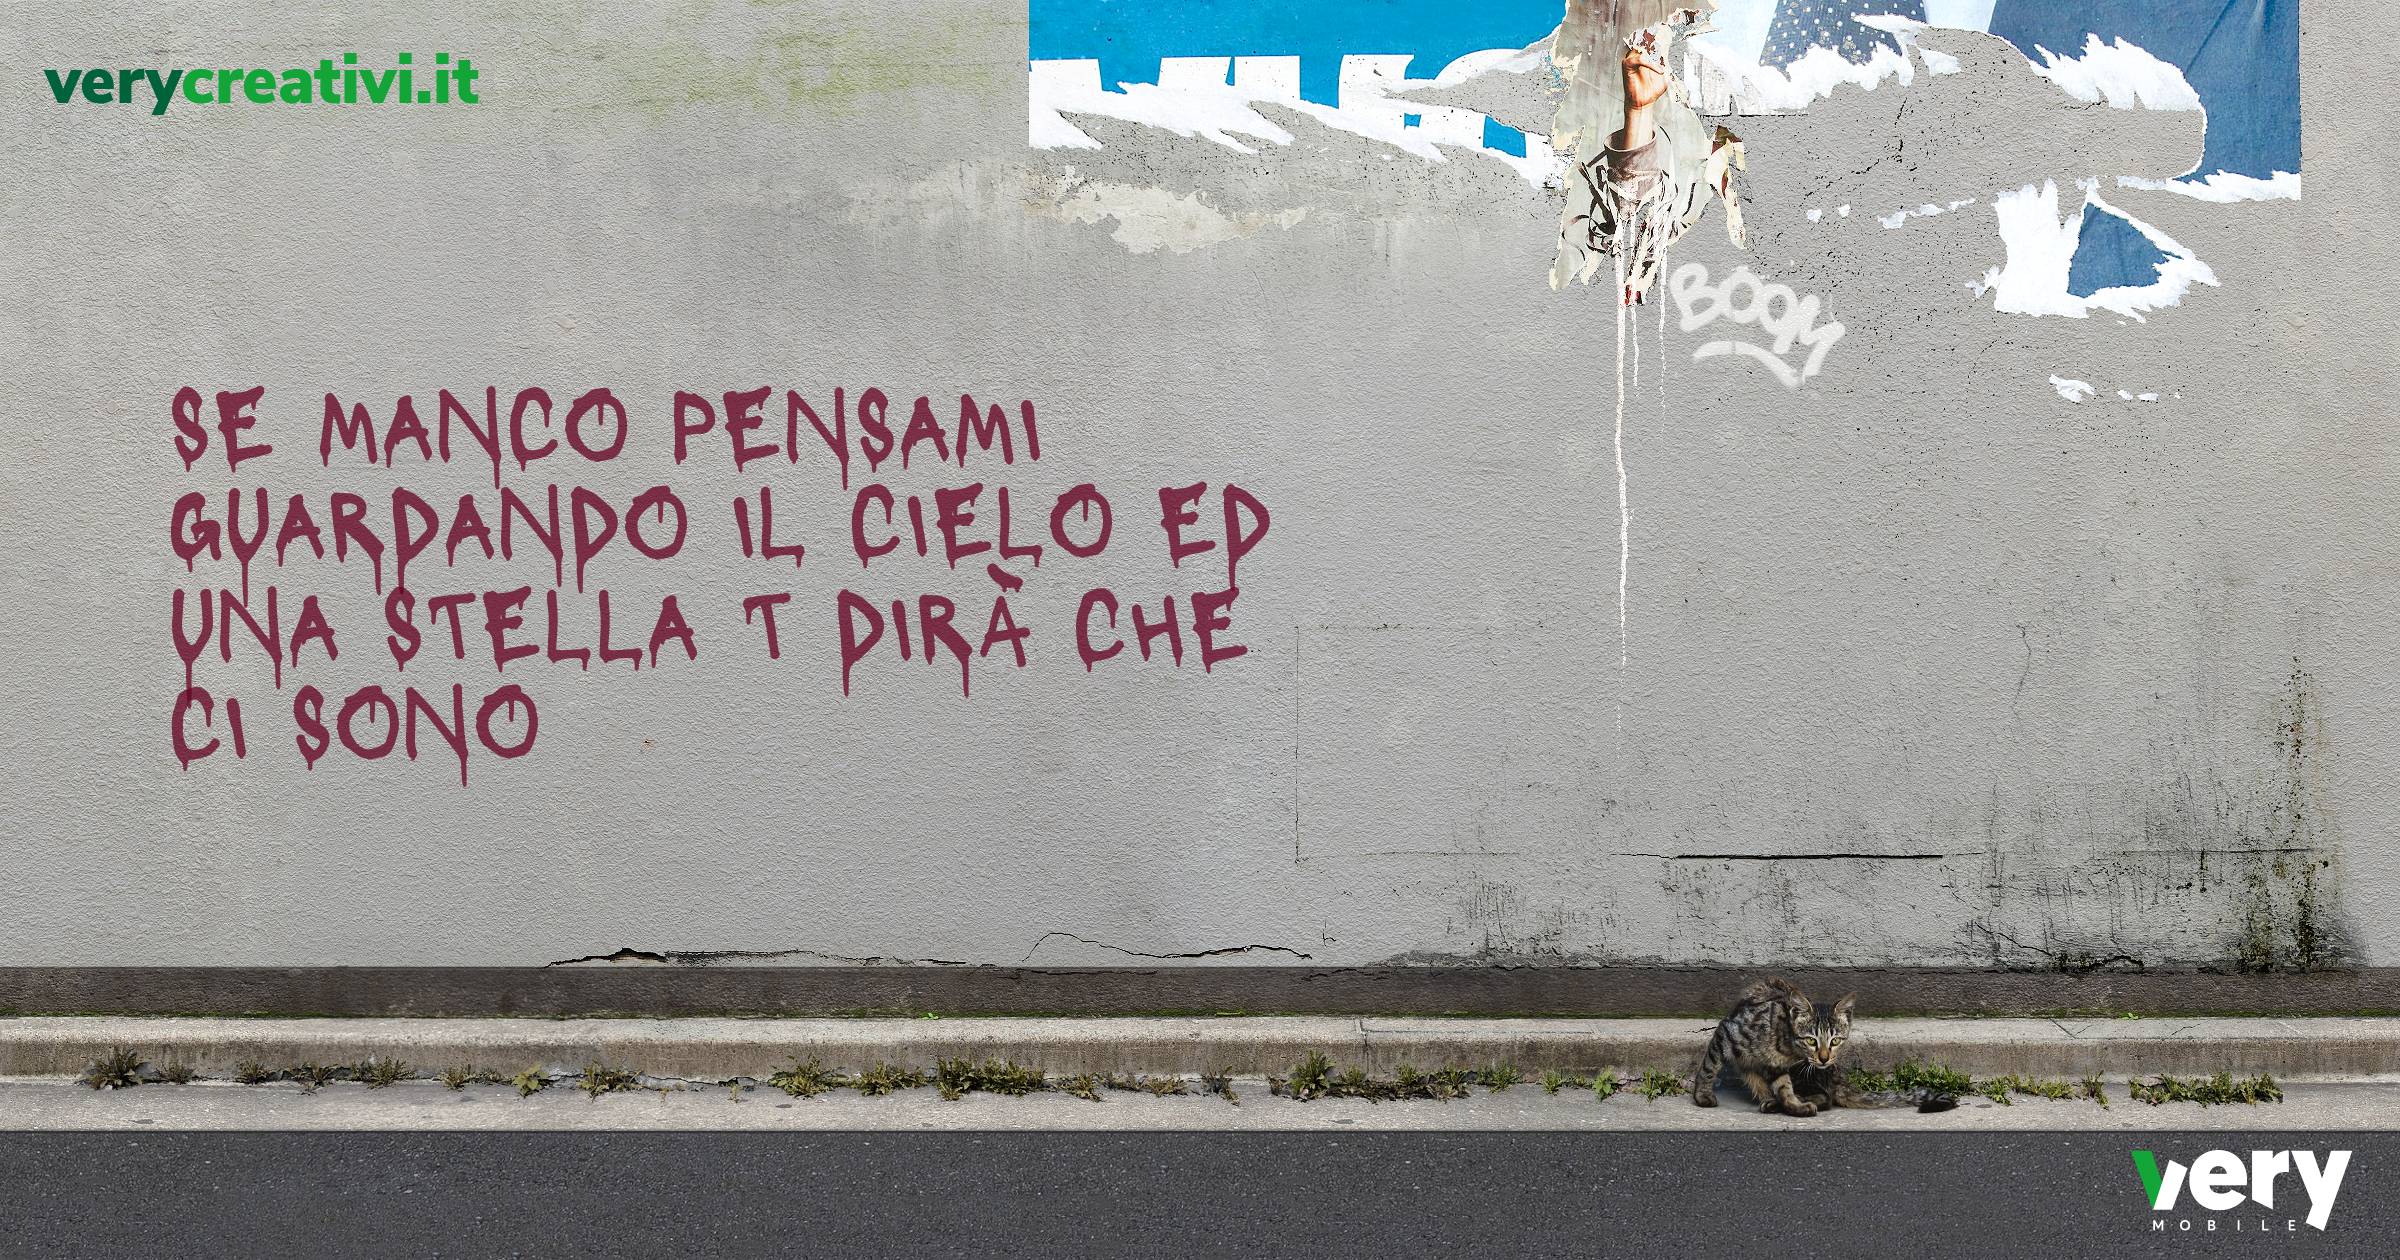 verycreativi.it
BOOM
SE MANCO PENSAMI
GUARDANDO IL CIELO ED
UNA STELLA T DIRÀ CHE
CI SONO
very
MOBILE